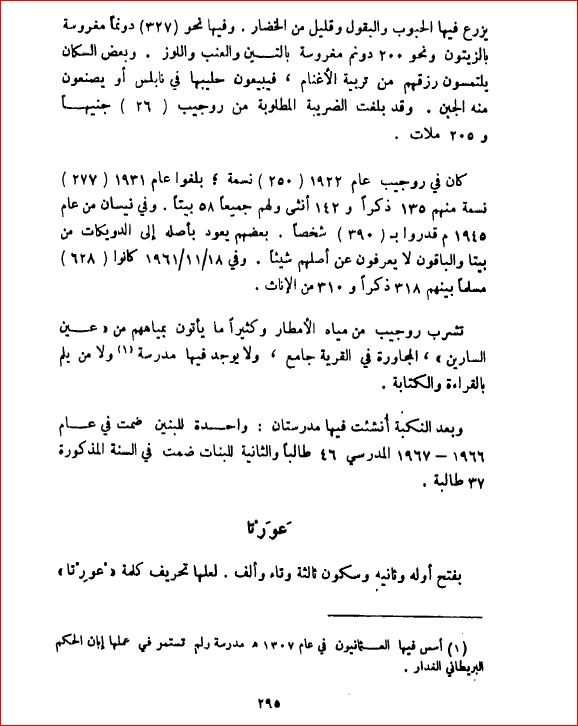 يزرع فيها الحبوب والبقول وقليل من الخضار . وفيها نحو (٣٢٧) دونماً مغروسة
بالزيتون ونحو ٢٠٠ دونم مغروسة بالتـــين والعنب واللوز . وبعض السكان
يلتمسون رزقهم من تربية الأغنام ، فيبيعون حليبها في نابلس أو يصنعون
منه الجبن . وقد بلغت الضريبة المطلوبة من روجيب ( ٢٦ ) جنيهـــاً
و ٢٠٥ ملات .
كان في روجيب عام ١٩٢٢ ( ٢٥٠ ) نسمة ؛ بلغوا عام ١٩٣١ ( ٢٧٧ )
نسمة منهم ١٣٥ ذكراً و ١٤٢ أنثى ولهم جميعاً ٥٨ بيتاً . وفي نيسان من عام
١٩٤٥ م قدروا بـ ( ٣٩٠ ) شخصاً . بعضهم يعود بأصله إلى الدويكات من
بيتا والباقون لا يعرفون عن أصلهم شيئاً . وفي ١٩٦١/١١/١٨ كانوا ( ٦٢٨ )
مسلماً بينهم ٣١٨ ذكراً و ٣١٠ من الإناث .
تشرب روجيب من مياه الأمطار وكثيراً ما يأتون بمياههم من « عـــين
السارين » ، المجاورة في القرية جامع ، ولا يوجد فيها مدرسة (١) ولا من يلم
بالقراءة والكتابة .
وبعد النكبة أُنشئت فيها مدرستان : واحـــدة للبنين ضمت في عـــام
١٩٦٦ – ١٩٦٧ المدرسي ٤٦ طالباً والثانية للبنات ضمت في السنة المذكورة
٣٧ طالبة .
عَوَرْتا
بفتح أوله وثانيه وسكون ثالثة وتاء وألف . لعلها تحريف كلمة « عورْتا »
(١) أسس فيها العـــثمانيون في عام ١٣٠٧ ﻫ مدرسة ولم تستمر في عملها إبان الحكم
البريطاني الغدار .
٢٩٥